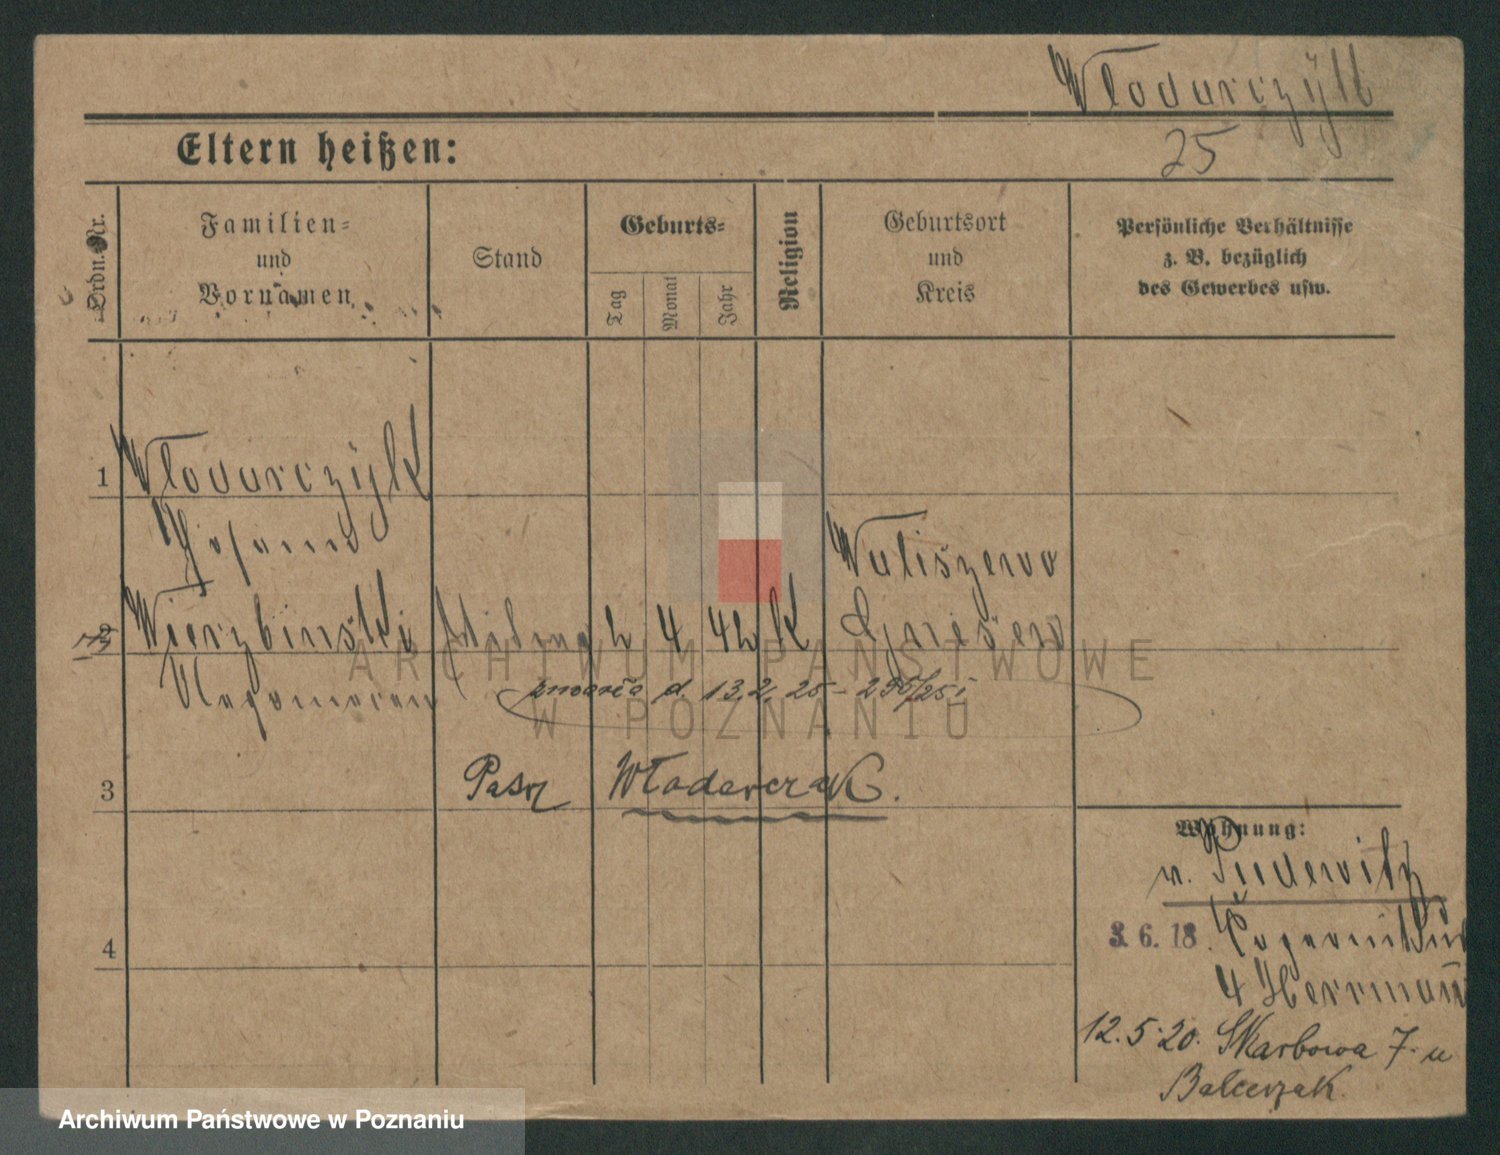 Włodarczyk
25
Eltern heißen:
Ordn. Nr.
Familien=
und
Vornamen
Stand
Geburts=
Tag
Monat
Jahr
Religion
Geburtsort
und
Kreis
Persönliche Verhältnisse
z. B. bezüglich
des Gewerbes usw.
1 Włodarczyk
Wuliszewo
2 Wierzbinski 2 4 42 K Gnesen
zmarła d. 13.2.25 - 295/25
3 Pasz Włoderczak.
Wohnung:
v. Pudewitz
3. 6. 18.
4 Herrmann
4
12.5.20. Skarbowa 7. u
Balcerzak.
ARCHIWUM PAŃSTWOWE
W POZNANIU
Archiwum Państwowe w Poznaniu